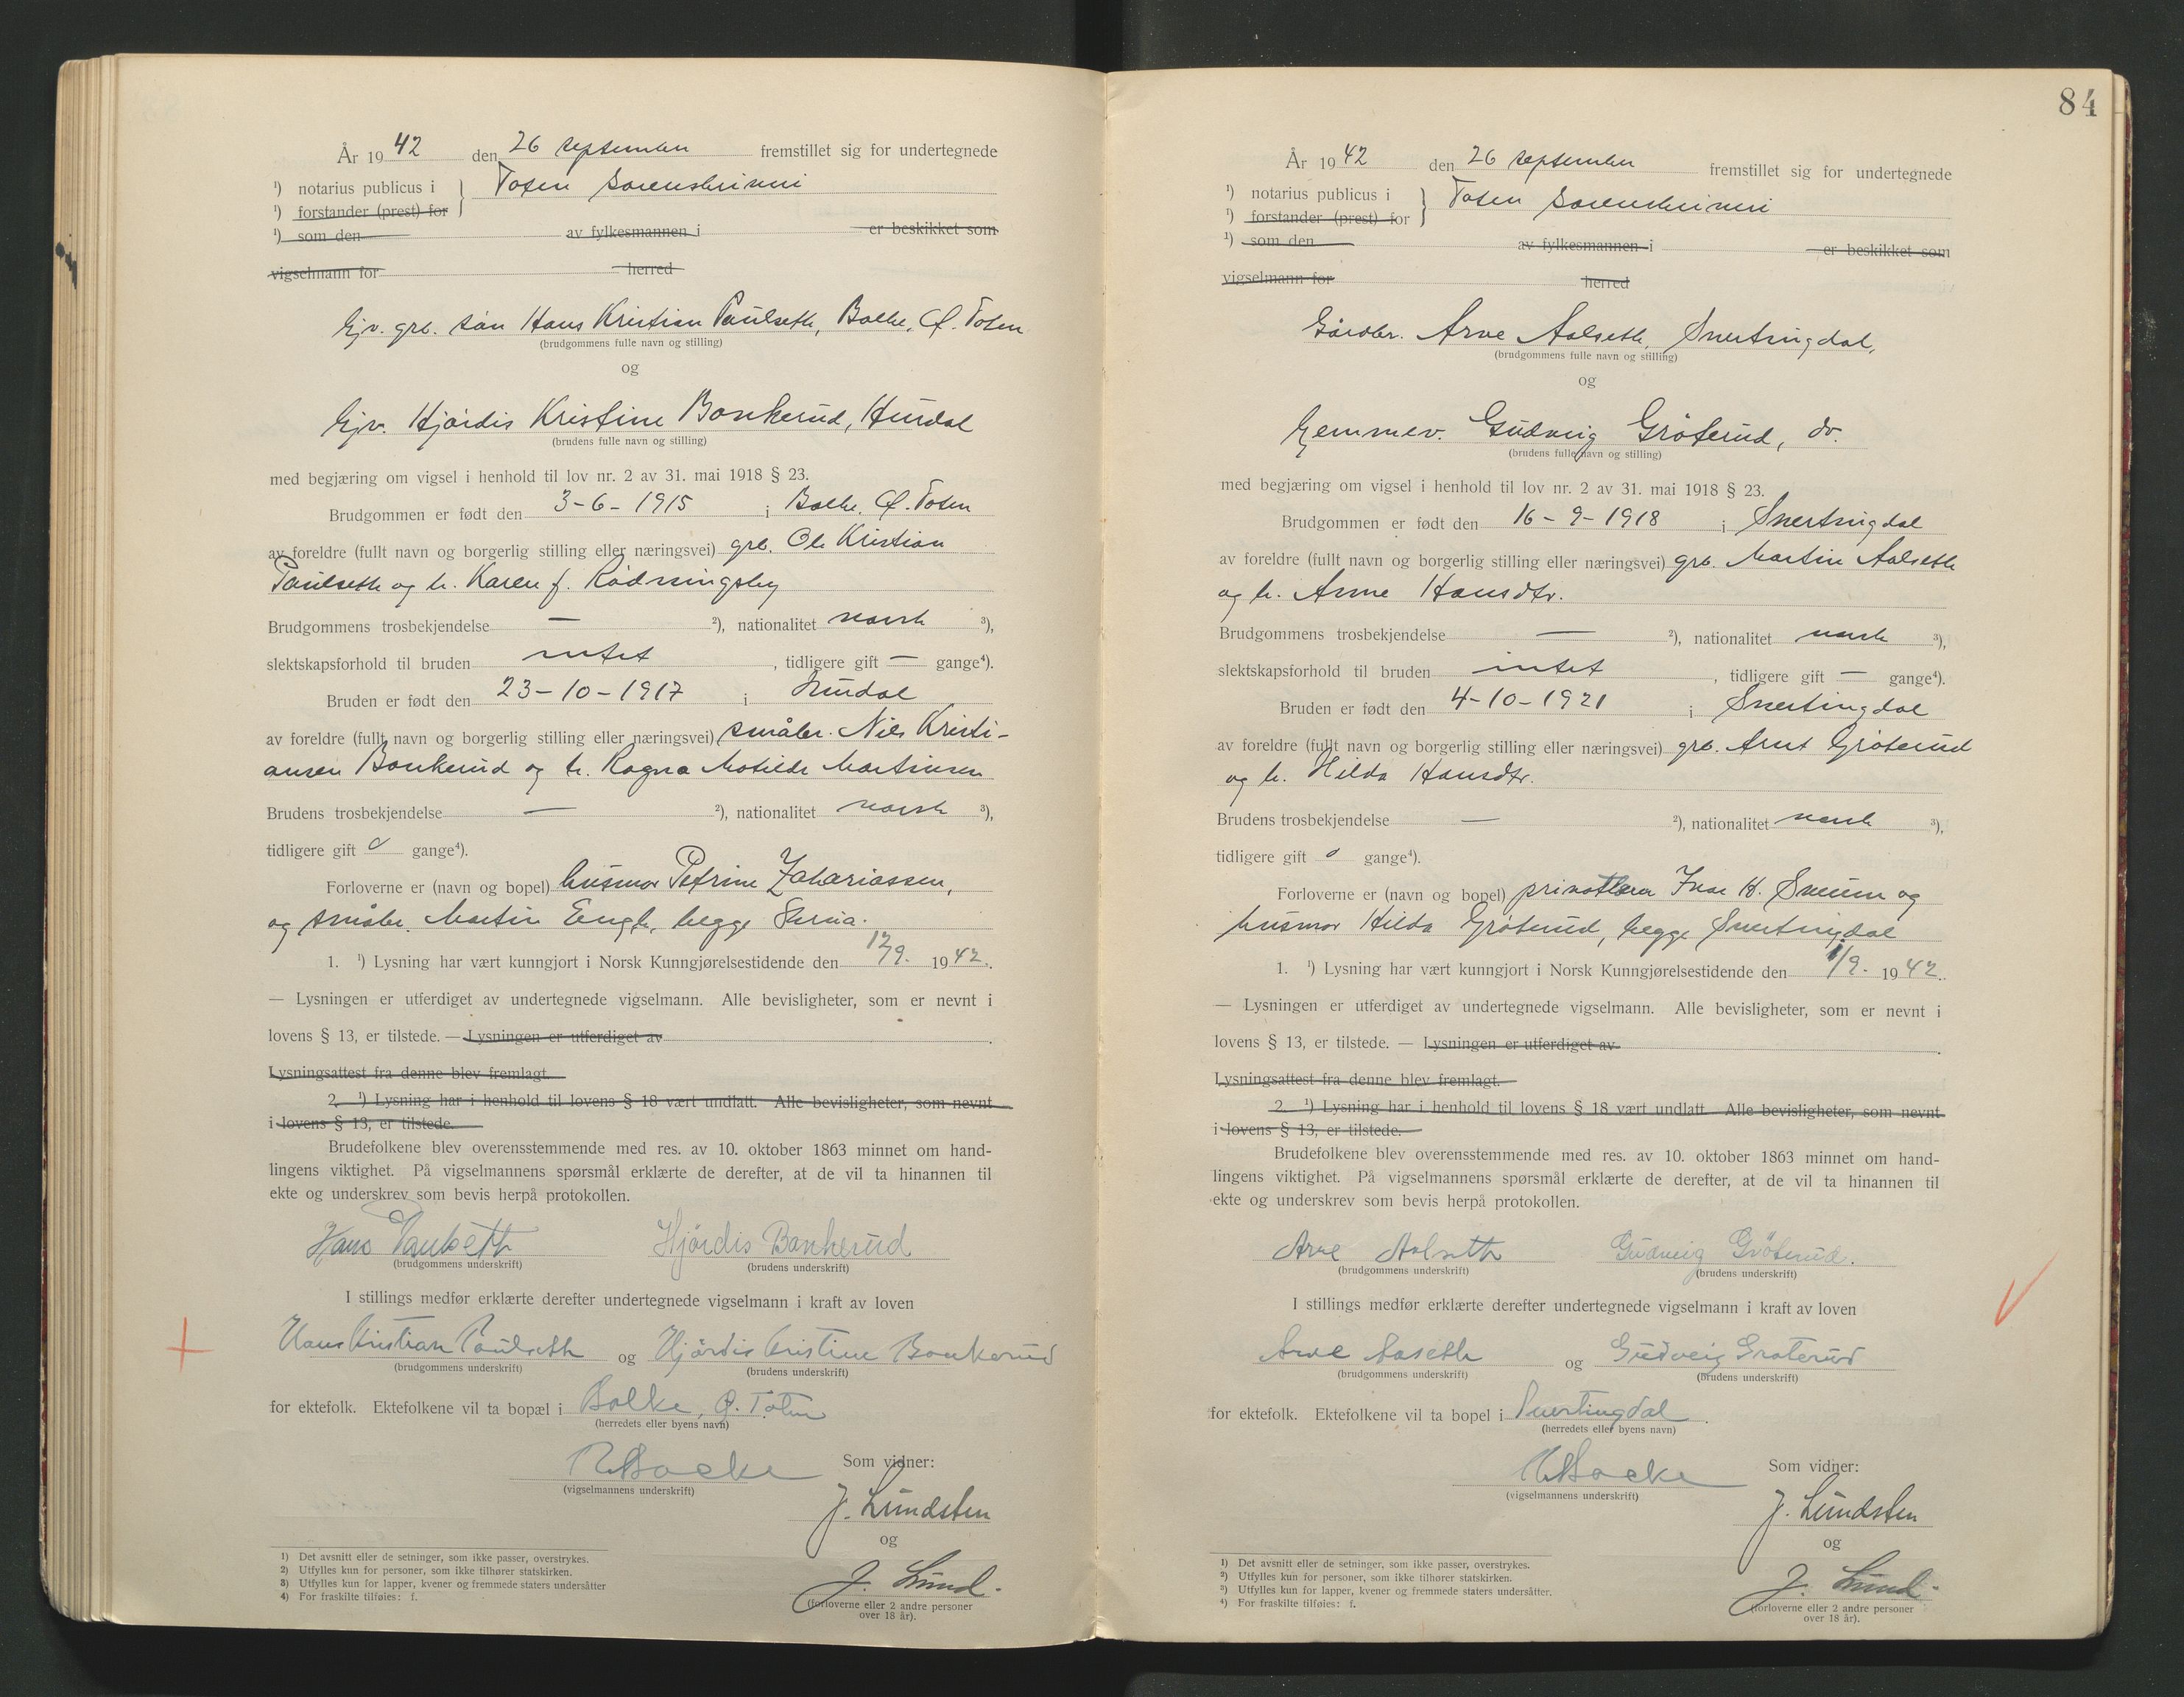 År 1942 den 26 september fremstillet sig for undertegnede
¹) notarius publicus i } Toten Sorenskriveri
¹) forstander (prest) for
¹) som den av fylkesmannen i er beskikket som
vigselmann for herred
Ejv. grb. sån Hans Kristian Paulseth, Bolke, Ø. Toten
(brudgommens fulle navn og stilling)
og
Ejv. Hjördis Kristine Bonkerud, Hurdal
(brudens fulle navn og stilling)
med begjæring om vigsel i henhold til lov nr. 2 av 31. mai 1918 § 23.
Brudgommen er født den 3-6-1915 i Bolke, Ø. Toten
av foreldre (fullt navn og borgerlig stilling eller næringsvei) grb. Ole Kristian
Paulseth og h. Karen f. Rödningsby
Brudgommens trosbekjendelse — ²), nationalitet norsk ³),
slektskapsforhold til bruden intet, tidligere gift — gange⁴).
Bruden er født den 23-10-1917 i Hurdal
av foreldre (fullt navn og borgerlig stilling eller næringsvei) småbr. Nils Kristi-
ansen Bonkerud og h. Ragna Matilde Martinsen
Brudens trosbekjendelse — ²), nationalitet norsk ³),
tidligere gift 0 gange⁴).
Forloverne er (navn og bopel) husmor Petrine Zakariassen,
og småbr. Martin Engh, begge Skreia.
1. ¹) Lysning har vært kunngjort i Norsk Kunngjørelsestidende den 12/9. 1942.
— Lysningen er utferdiget av undertegnede vigselmann. Alle bevisligheter, som er nevnt i
lovens § 13, er tilstede. — Lysningen er utferdiget av
Lysningsattest fra denne blev fremlagt.
2. ¹) Lysning har i henhold til lovens § 18 vært undlatt. Alle bevisligheter, som nevnt
i lovens § 13, er tilstede.
Brudefolkene blev overensstemmende med res. av 10. oktober 1863 minnet om hand-
lingens viktighet. På vigselmannens spørsmål erklærte de derefter, at de vil ta hinannen til
ekte og underskrev som bevis herpå protokollen.
Hans Paulseth Hjördis Bonkerud
(brudgommens underskrift) (brudens underskrift)
I stillings medfør erklærte derefter undertegnede vigselmann i kraft av loven
Hans Kristian Paulseth og Hjördis Kristine Bonkerud
(brudgommens underskrift) (brudens underskrift)
for ektefolk. Ektefolkene vil ta bopæl i Bolke, Ø. Toten
(herredets eller byens navn)
Som vidner:
(vigselmannens underskrift)
J. Lundsten
og
J. Lund.
(forloverne eller 2 andre personer
over 18 år).
1) Det avsnitt eller de setninger, som ikke passer, overstrykes.
2) Utfylles kun for personer, som ikke tilhører statskirken.
3) Utfylles kun for lapper, kvener og fremmede staters undersåtter
4) For fraskilte tilføies: f.
84
År 1942 den 26 september fremstillet sig for undertegnede
¹) notarius publicus i } Toten Sorenskriveri
¹) forstander (prest) for
¹) som den av fylkesmannen i er beskikket som
vigselmann for herred
Gårdbr. Arve Aalseth, Snertingdal,
(brudgommens fulle navn og stilling)
og
Hjemmev. Gudveig Gröterud, do.
(brudens fulle navn og stilling)
med begjæring om vigsel i henhold til lov nr. 2 av 31. mai 1918 § 23.
Brudgommen er født den 16-9-1918 i Snertingdal
av foreldre (fullt navn og borgerlig stilling eller næringsvei) grb. Martin Aalseth
og h. Anne Hansdtr.
Brudgommens trosbekjendelse — ²), nationalitet norsk ³),
slektskapsforhold til bruden intet, tidligere gift — gange⁴).
Bruden er født den 4-10-1921 i Snertingdal
av foreldre (fullt navn og borgerlig stilling eller næringsvei) grb. Arnt Gröterud
og h. Hilda Hansdtr.
Brudens trosbekjendelse — ²), nationalitet norsk ³),
tidligere gift 0 gange⁴).
Forloverne er (navn og bopel) Ivar H. Sveum og
husmor Hilda Gröterud, begge Snertingdal
1. ¹) Lysning har vært kunngjort i Norsk Kunngjørelsestidende den 1/9. 1942.
— Lysningen er utferdiget av undertegnede vigselmann. Alle bevisligheter, som er nevnt i
lovens § 13, er tilstede. — Lysningen er utferdiget av
Lysningsattest fra denne blev fremlagt.
2. ¹) Lysning har i henhold til lovens § 18 vært undlatt. Alle bevisligheter, som nevnt
i lovens § 13, er tilstede.
Brudefolkene blev overensstemmende med res. av 10. oktober 1863 minnet om hand-
lingens viktighet. På vigselmannens spørsmål erklærte de derefter, at de vil ta hinannen til
ekte og underskrev som bevis herpå protokollen.
Arve Aalseth Gudveig Gröterud.
(brudgommens underskrift) (brudens underskrift)
I stillings medfør erklærte derefter undertegnede vigselmann i kraft av loven
Arve Aaseth og Gudveig Groterud
(brudgommens underskrift) (brudens underskrift)
for ektefolk. Ektefolkene vil ta bopel i Snertingdal.
(herredets eller byens navn)
Som vidner:
(vigselmannens underskrift)
J. Lundsten
og
J. Lund.
(forloverne eller 2 andre personer
over 18 år).
¹) Det avsnitt eller de setninger, som ikke passer, overstrykes.
²) Utfylles kun for personer, som ikke tilhører statskirken.
³) Utfylles kun for lapper, kvener og fremmede staters undersåtter.
⁴) For fraskilte tilføies: f.